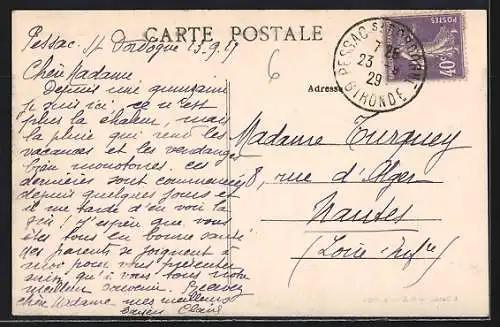 CARTE POSTALE
Pessac s/ Dordogne 23.9.29
Chère Madame
Depuis une quinzaine
je suis ici, ce n'est
plus la chaleur, mais
la pluie qui rend les
vacances et les vendanges
bien monotones, ces
dernières sont commencées
depuis quelques jours et
il me tarde d'en voir la
fin. J'espère que vous
êtes tous en bonne santé
des parents se joignent à
moi pour vous présenter
ainsi qu'à vous tous notre
meilleur souvenir. Recevez
chère Madame mes meilleurs
Claire
6
Adresse
PESSAC S/ DORDOGNE
7
23 - 9
29
GIRONDE
POSTES
40c
Madame Turquey
8, rue d'Alger
Nantes
(Loire-Infre)